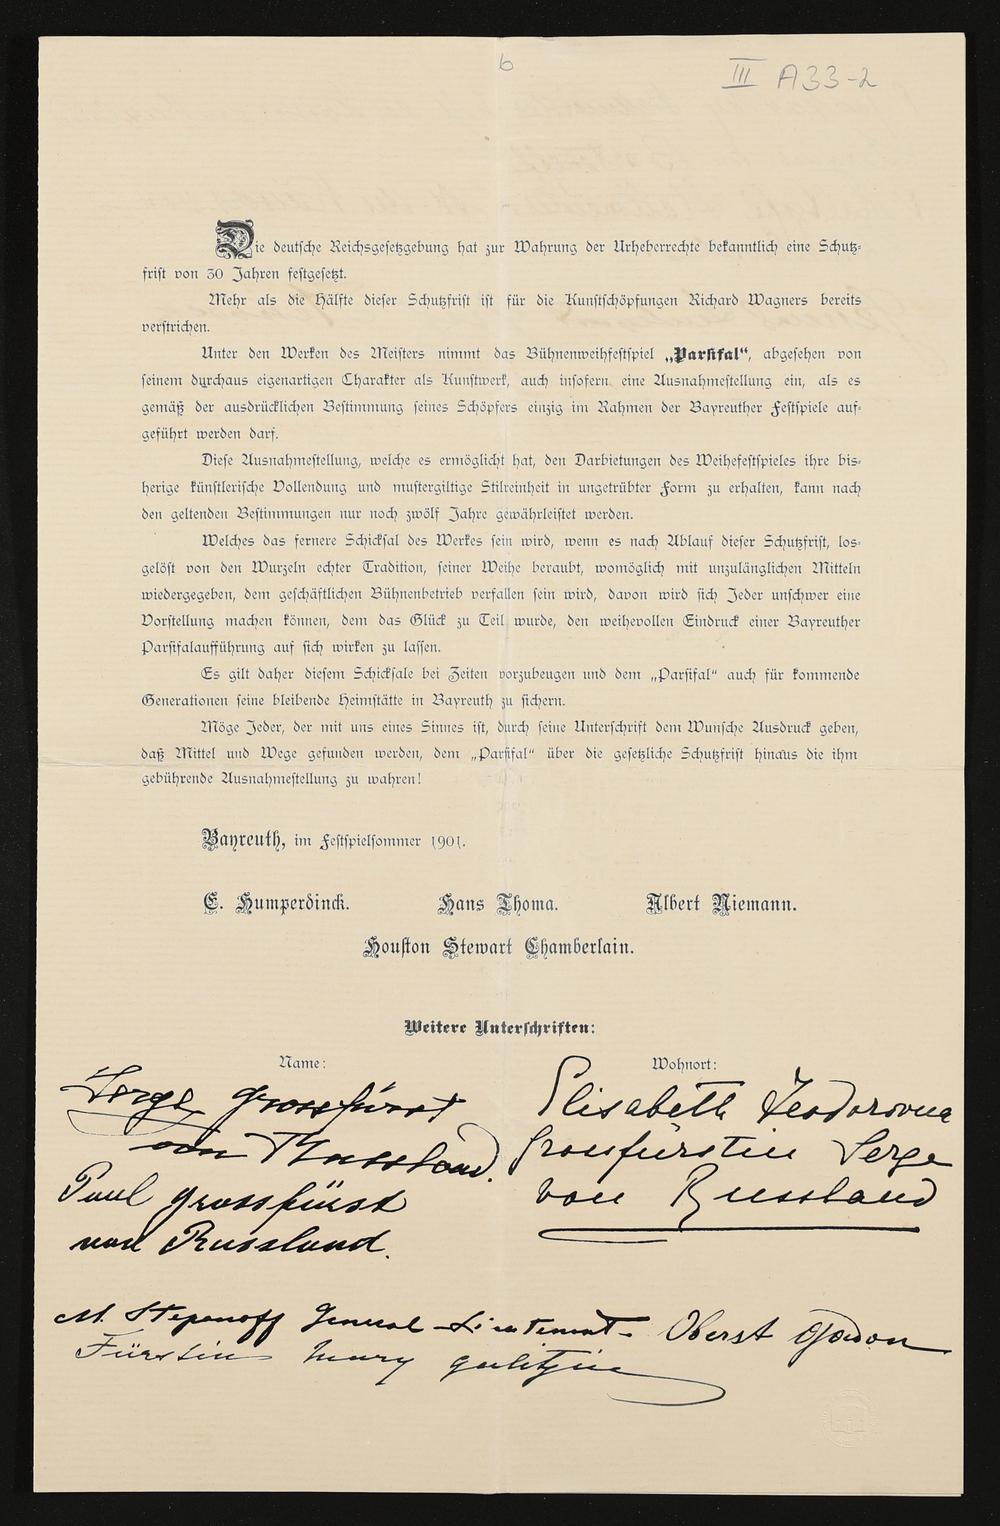 6
III A33-2
Die deutsche Reichsgesetzgebung hat zur Wahrung der Urheberrechte bekanntlich eine Schutz-
frist von 30 Jahren festgesetzt.
Mehr als die Hälfte dieser Schutzfrist ist für die Kunstschöpfungen Richard Wagners bereits
verstrichen.
Unter den Werken des Meisters nimmt das Bühnenweihfestspiel „Parsifal“, abgesehen von
seinem durchaus eigenartigen Charakter als Kunstwerk, auch insofern eine Ausnahmestellung ein, als es
gemäß der ausdrücklichen Bestimmung seines Schöpfers einzig im Rahmen der Bayreuther Festspiele auf-
geführt werden darf.
Diese Ausnahmestellung, welche es ermöglicht hat, den Darbietungen des Weihefestspieles ihre bis-
herige künstlerische Vollendung und mustergiltige Stilreinheit in ungetrübter Form zu erhalten, kann nach
den geltenden Bestimmungen nur noch zwölf Jahre gewährleistet werden.
Welches das fernere Schicksal des Werkes sein wird, wenn es nach Ablauf dieser Schutzfrist, los-
gelöst von den Wurzeln echter Tradition, seiner Weihe beraubt, womöglich mit unzulänglichen Mitteln
wiedergegeben, dem geschäftlichen Bühnenbetrieb verfallen sein wird, davon wird sich Jeder unschwer eine
Vorstellung machen können, dem das Glück zu Teil wurde, den weihevollen Eindruck einer Bayreuther
Parsifalaufführung auf sich wirken zu lassen.
Es gilt daher diesem Schicksale bei Zeiten vorzubeugen und dem „Parsifal“ auch für kommende
Generationen seine bleibende Heimstätte in Bayreuth zu sichern.
Möge Jeder, der mit uns eines Sinnes ist, durch seine Unterschrift dem Wunsche Ausdruck geben,
daß Mittel und Wege gefunden werden, dem „Parsifal“ über die gesetzliche Schutzfrist hinaus die ihm
gebührende Ausnahmestellung zu wahren!
Bayreuth, im Festspielsommer 1901.
E. Humperdinck. Hans Thoma. Albert Niemann.
Houston Stewart Chamberlain.
Weitere Unterschriften:
Name: Wohnort:
Serge Grossfürst
von Russland.
Elisabeth Feodorovna
Grossfürstin Serge
von Russland
Paul Grossfürst
von Russland.
M. Stepanoff General-Lieutenant- Oberst
Fürstin Mary Galitzin